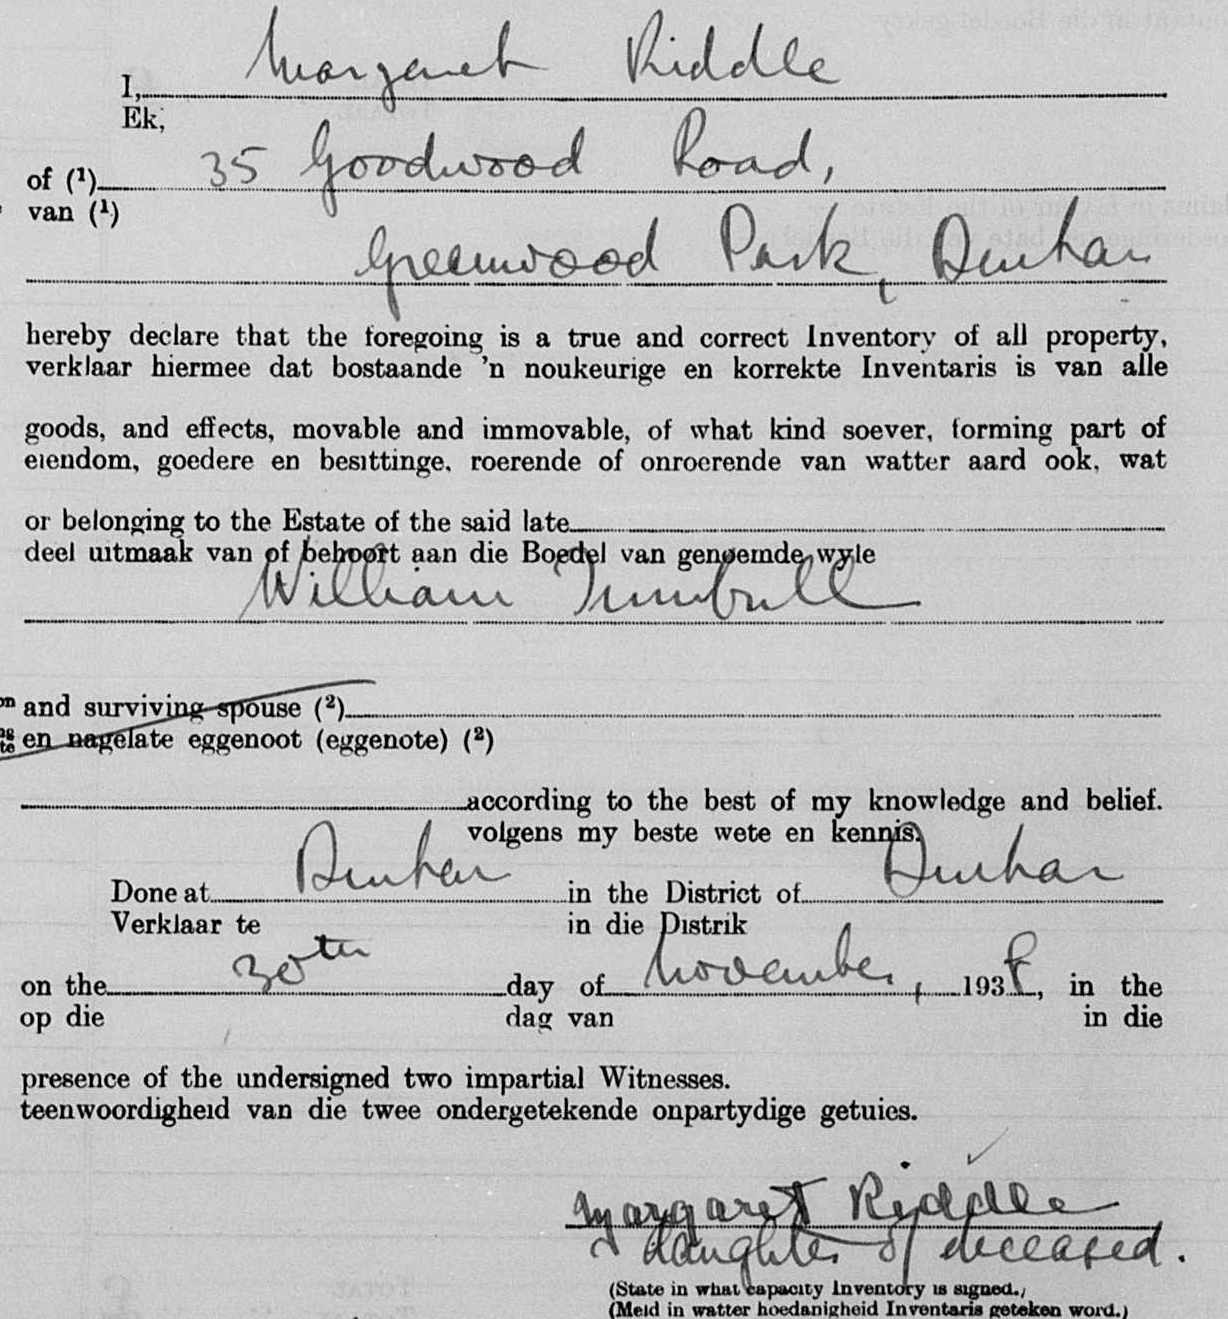 I, Margaret Riddle
Ek,
of (¹) 35 Goodwood Road,
van (¹)
Greenwood Park, Durban
hereby declare that the foregoing is a true and correct Inventory of all property,
verklaar hiermee dat bostaande 'n noukeurige en korrekte Inventaris is van alle
goods, and effects, movable and immovable, of what kind soever, forming part of
eiendom, goedere en besittinge, roerende of onroerende van watter aard ook, wat
or belonging to the Estate of the said late
deel uitmaak van of behoort aan die Boedel van genoemde wyle
William Turnbull
and surviving spouse (²)
en nagelate eggenoot (eggenote) (²)
according to the best of my knowledge and belief.
volgens my beste wete en kennis.
Done at Durban in the District of Durban
Verklaar te in die Distrik
on the 30th day of November, 1938, in the
op die dag van in die
presence of the undersigned two impartial Witnesses.
teenwoordigheid van die twee ondergetekende onpartydige getuies.
Margaret Riddle
daughter of deceased.
(State in what capacity Inventory is signed.)
(Meld in watter hoedanigheid Inventaris geteken word.)